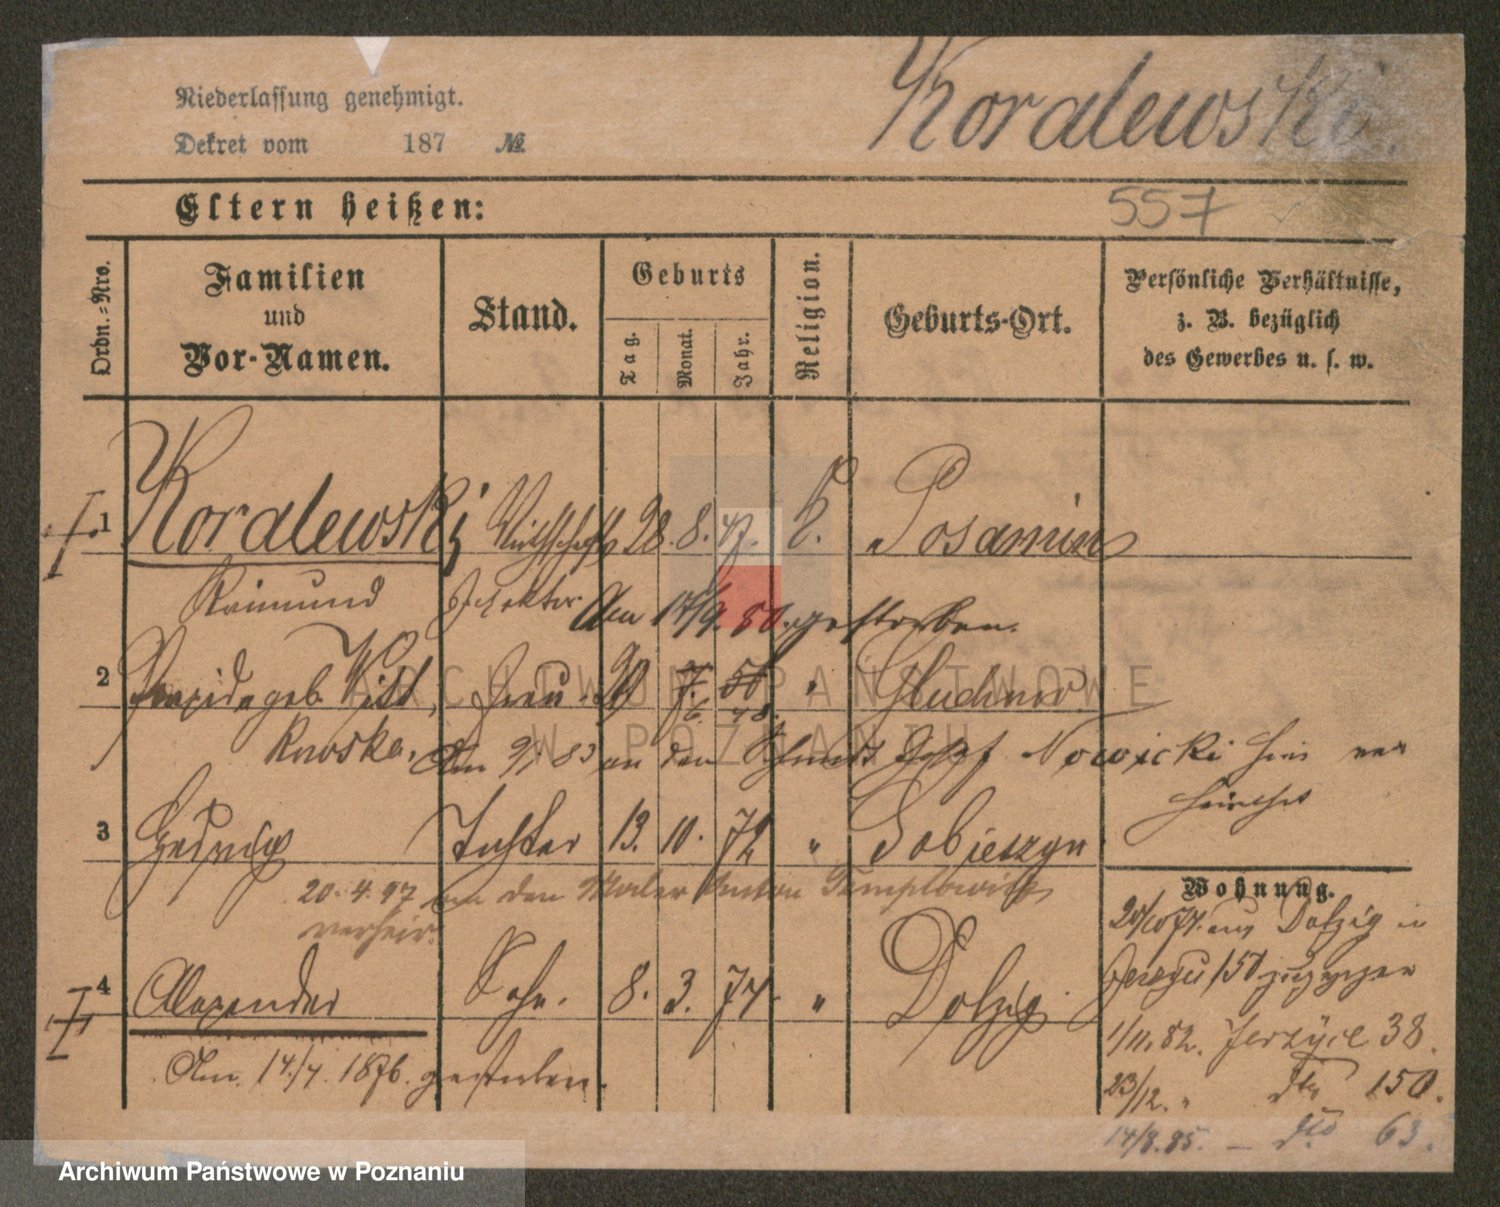 Niederlassung genehmigt.
Dekret vom 187 №
Koralewski.
Eltern heißen:
557
Ordn.-Nro.
Familien
und
Vor-Namen.
Stand.
Geburts
Tag.
Monat.
Jahr.
Religion.
Geburts-Ort.
Persönliche Verhältnisse,
z. B. bezüglich
des Gewerbes u. s. w.
1 Koralewski Wirthschafts 28. 8. 47. K.
Raimund Inspektor Am 17/9. 80. gestorben.
2 geb. Witt, Frau
6. 48.
kowska, Am 9/ 83 an den Nowicki hier ver
heirathet
3 Hedwig Tochter 13. 10. 72 " Sobieszyn
20. 4. 97 an den Maler Anton
verheir.
Wohnung.
20/10 74. aus Dolzig in
Jerzyce 150 zugezogen
4 Alexander Sohn. 8. 3. 74. " Dolzig
1/11. 82. Jerzyce 38.
Am 14./7. 1876. gestorben.
23/12. " dto 150.
14/8. 85. — dto 63.
ARCHIWUM PAŃSTWOWE
W POZNANIU
Archiwum Państwowe w Poznaniu